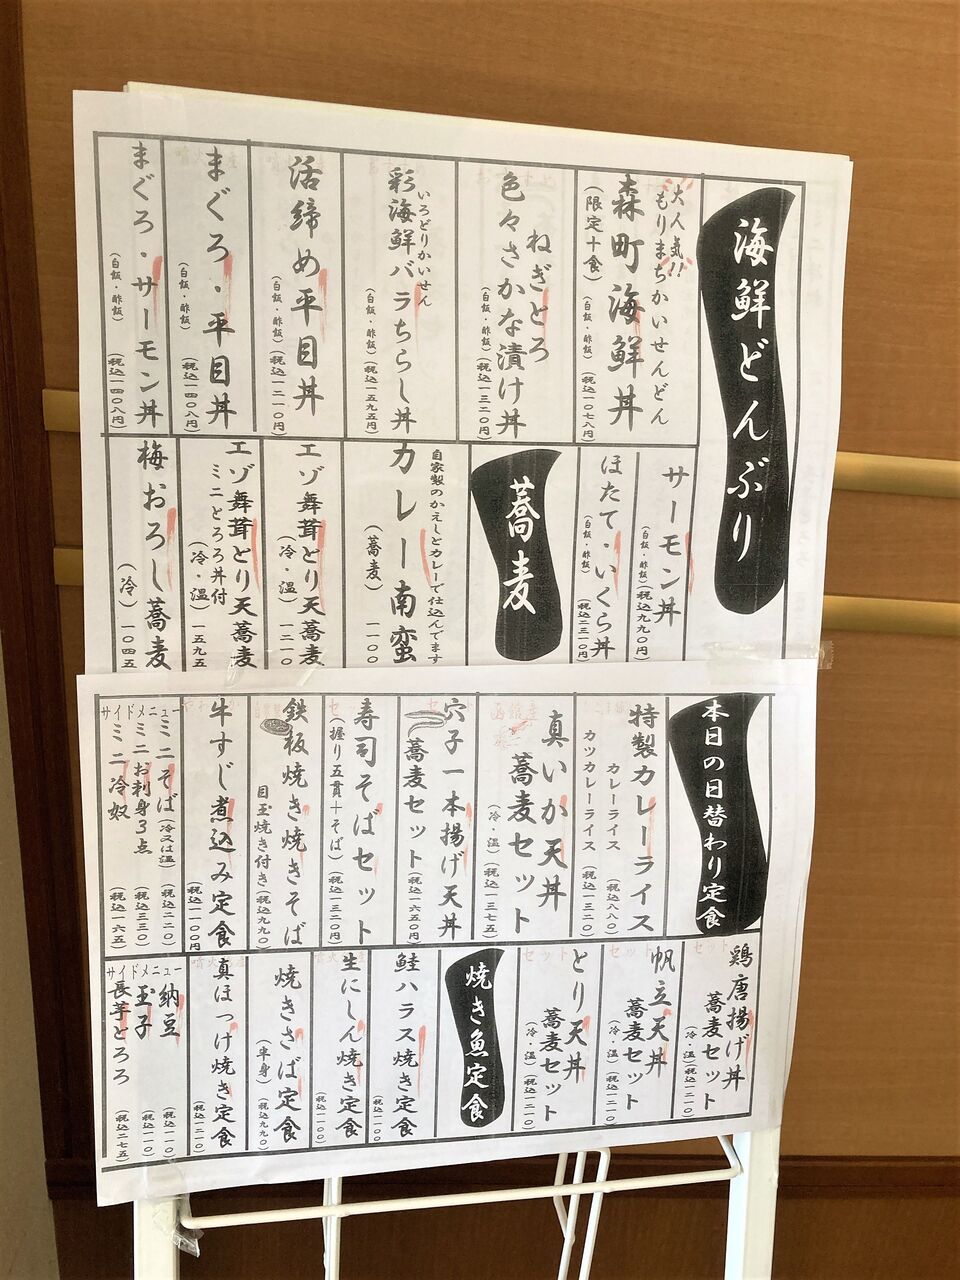 海鮮どんぶり
大人気!!
もりまちかいせんどん
森町海鮮丼
(限定十食)
(白飯・酢飯)
(税込一〇七八円)
ねぎとろ
色々さかな漬け丼
(白飯・酢飯)
(税込一三二〇円)
いろどりかいせん
彩海鮮バラちらし丼
(白飯・酢飯)
(税込一五九五円)
活締め平目丼
(白飯・酢飯)
(税込一二一〇円)
まぐろ・平目丼
(白飯・酢飯)
(税込一四〇八円)
まぐろ・サーモン丼
(白飯・酢飯)
(税込一四〇八円)
サーモン丼
(白飯・酢飯)
(税込九九〇円)
ほたて・いくら丼
(白飯・酢飯)
(税込二三一〇円)
蕎麦
自家製のかえしとカレーで仕込んでます
カレー南蛮
(蕎麦)
一一〇〇
エゾ舞茸とり天蕎麦
(冷・温)
一二一〇
エゾ舞茸とり天蕎麦
ミニとろろ丼付
(冷・温)
一五九五
梅おろし蕎麦
(冷)
一〇四五
本日の日替わり定食
特製カレーライス
カレーライス
(税込八八〇)
カツカレーライス
(税込一三二〇)
真いか天丼
蕎麦セット
(冷・温)
(税込一三七五)
穴子一本揚げ天丼
蕎麦セット
(税込一六五〇円)
寿司そばセット
(握り五貫+そば)
(税込一三二〇円)
鉄板焼き焼きそば
目玉焼き付き
(税込九九〇)
牛すじ煮込み定食
(税込一一〇〇円)
サイドメニュー
ミニそば
(冷又は温)
(税込二二〇)
ミニお刺身3点
(税込三三〇)
ミニ冷奴
(税込一六五)
鶏唐揚げ丼
蕎麦セット
(冷・温)
(税込一二一〇)
帆立天丼
蕎麦セット
(冷・温)
(税込一二一〇)
とり天丼
蕎麦セット
(冷・温)
(税込一二一〇)
焼き魚定食
鮭ハラス焼き定食
(税込一一〇〇)
生にしん焼き定食
(税込一一〇〇)
焼きさば定食
(半身)
(税込九九〇)
真ほっけ焼き定食
(税込一二一〇)
サイドメニュー
納豆
(税込一一〇)
玉子
(税込一一〇)
長芋とろろ
(税込二七五)